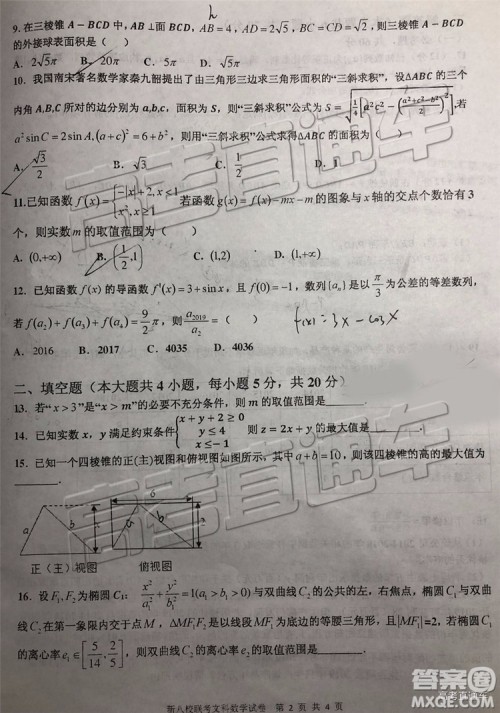 9. 在三棱锥 A－BCD 中, AB⊥面 BCD, AB=4, AD=2√5, BC=CD=√2, 则三棱锥 A－BCD
的外接球表面积是（    ）
A. 2√5π    B. 20π    C. 5π    D. √5π
10. 我国南宋著名数学家秦九韶提出了由三角形三边求三角形面积的“三斜求积”，设△ABC 的三个
内角 A,B,C 所对的边分别为 a,b,c, 面积为 S, 则“三斜求积”公式为 S=√(1/4[a²c²−((a²+c²−b²)/2)²]), 若
a² sin C=2sin A, (a+c)²=6+b², 则用“三斜求积”公式求得△ABC 的面积为（    ）
A. √3/2    B. √3    C. 1/2    D. 1
11.已知函数 f(x)={−|x|+2, x≤1   x²    若函数 g(x)=f(x)−mx−m 的图象与 x 轴的交点个数恰有 3
个，则实数 m 的取值范围为（    ）
A. (0,+∞)    B. (1/2,1)    C. (1,2)    D. (1,+∞)
12. 已知函数 f(x) 的导函数 f'(x)=3+sin x, 且 f(0)=−1, 数列{aₙ}是以 π/3 为公差的等差数列,
若 f(a₂)+f(a₃)+f(a₄)=9/2 π, 则 a₂₀₁₉/a₂=（    ）
f(x)=3x−cosx
A. 2016    B. 2017    C. 4035    D. 4036
二、填空题（本大题共 4 小题，每小题 5 分，共 20 分）
13. 若“x>3”是“x>m”的必要不充分条件，则 m 的取值范围是________.
14. 已知实数 x, y 满足约束条件{x+y+2≥0   y≤4   x≤−1    则 z=2x+y 的最大值是________.
15. 已知一个四棱锥的正(主)视图和俯视图如图所示，其中 a+b=10, 则该四棱锥的高的最大值为
________.
a    b    6
正（主）视图    俯视图
16. 设 F₁,F₂ 为椭圆 C₁: x²/a₁²+y²/b₁²=1(a₁>b₁>0)与双曲线 C₂ 的公共的左，右焦点，椭圆 C₁ 与双曲
线 C₂ 在第一象限内交于点 M, △MF₁F₂ 是以线段 MF₁ 为底边的等腰三角形，且|MF₁|=2, 若椭圆 C₁
的离心率 e₁∈[5/14, 2/5], 则双曲线 C₂ 的离心率的取值范围是________.
新八校联考文科数学试卷  第 2 页 共 4 页
高考直通车
高考直通车
答案圈